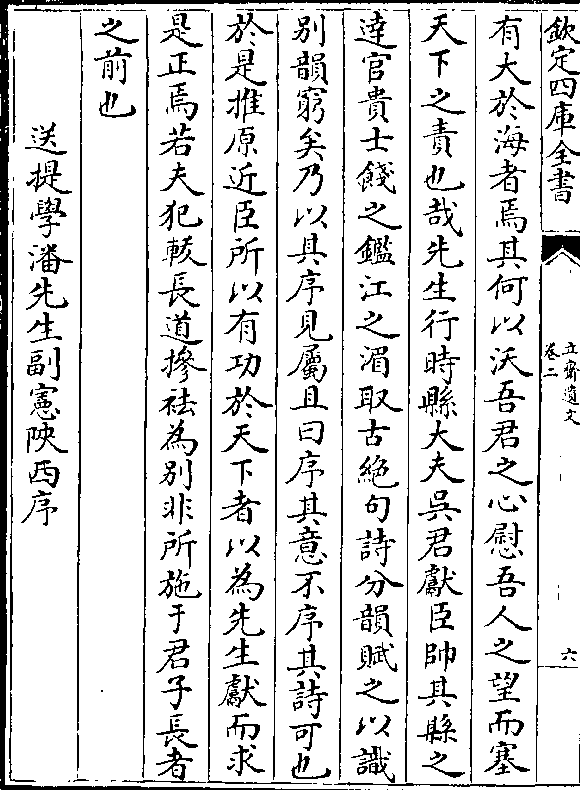 欽定四庫全書
立齋遺文
卷二
六
有大於海者焉其何以沃吾君之心慰吾人之望而塞
天下之責也哉先生行時縣大夫吳君獻臣帥其縣之
達官貴士餞之鑑江之湄取古絶句詩分韻賦之以識
别韻窮矣乃以其序見屬且曰序其意不序其詩可也
於是推原近臣所以有功於天下者以為先生獻而求
是正焉若夫犯軷長道摻袪為别非所施于君子長者
之前也
送提學潘先生副憲陜西序